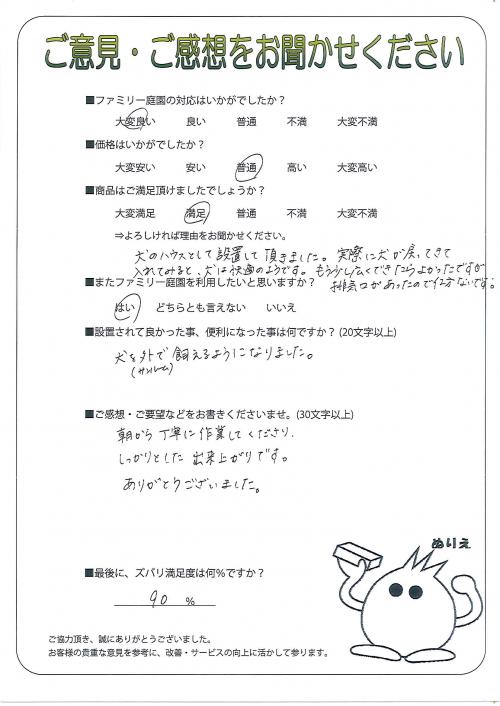 ご意見・ご感想をお聞かせください
■ファミリー庭園の対応はいかがでしたか？
大変良い 良い 普通 不満 大変不満
■価格はいかがでしたか？
大変安い 安い 普通 高い 大変高い
■商品はご満足頂けましたでしょうか？
大変満足 満足 普通 不満 大変不満
⇒よろしければ理由をお聞かせください。
犬のハウスとして設置して頂きました。実際に犬が戻ってきて
入れてみると、犬は快適のようです。もう少し広くできたらよかったですが
■またファミリー庭園を利用したいと思いますか？ 排気口があったので仕方ないです。
はい どちらとも言えない いいえ
■設置されて良かった事、便利になった事は何ですか？(20文字以上)
犬を外で飼えるようになりました。
(サンルーム)
■ご感想・ご要望などをお書きくださいませ。(30文字以上)
朝から丁寧に作業してくださり、
しっかりとした出来上がりです。
ありがとうございました。
ぬりえ
■最後に、ズバリ満足度は何％ですか？
90 ％
ご協力頂き、誠にありがとうございました。
お客様の貴重な意見を参考に、改善・サービスの向上に活かして参ります。